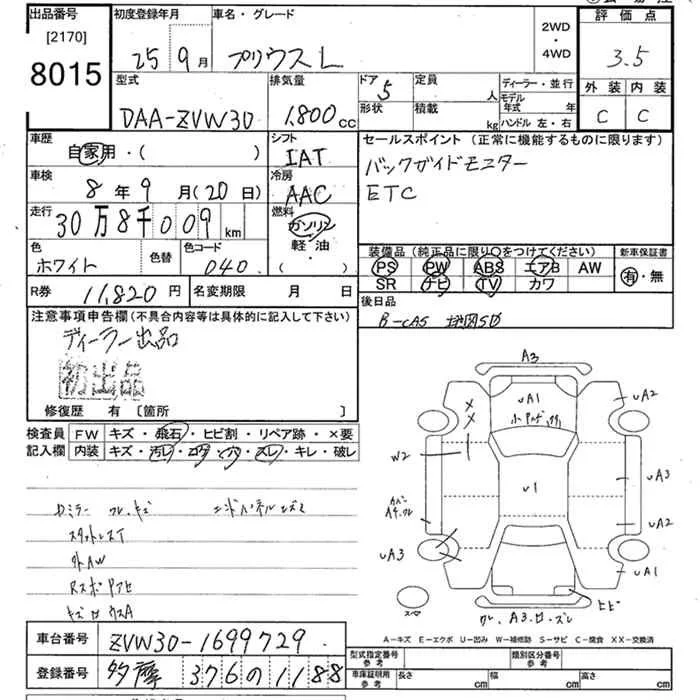 出品番号
[2170]
8015
初度登録年月
25 9 月
車名・グレード
プリウス L
2WD
・
4WD
評価点
3.5
外装 内装
C C
型式
DAA-ZVW30
排気量
1,800 cc
ドア 5
形状
定員 人
積載 kg
ディーラー・並行
モデル年式 年
ハンドル 左・右
車歴
自家用・( )
シフト
IAT
セールスポイント (正常に機能するものに限ります)
バックガイドモニター
ETC
車検
8 年 9 月 (20 日)
冷房
AAC
走行
30万8千009 km
燃料
ガソリン
軽・油
・( )
色
ホワイト
色替
色コード
040
装備品 (純正品に限り〇をつけてください)
PS PW ABS エアB AW
SR ナビ TV カワ
新車保証書
有・無
R券 11,820 円
名変期限 月 日
後日品
B-CAS 地図SD
注意事項申告欄 (不具合内容等は具体的に記入して下さい)
ディーラー出品
初出品
修復歴 有 [箇所 ]
検査員記入欄
FW キズ・飛石・ヒビ割・リペア跡・×要
内装 キズ・汚レ・コゲ・穴・スレ・キレ・破レ
スタットレスT
社外AW
A3
UA1
UA2
W2
U1
UA3
UA2
UA3
UA1
ヒビ
スペア
A－キズ E－エクボ U－凹み W－補修跡 S－サビ C－腐食 XX－交換済
車台番号 ZVW30-1699729
登録番号 多摩 376 の 1188
型式指定番号 参考
類別区分番号 参考
車庫証明用 参考
長さ cm
幅 cm
高さ cm